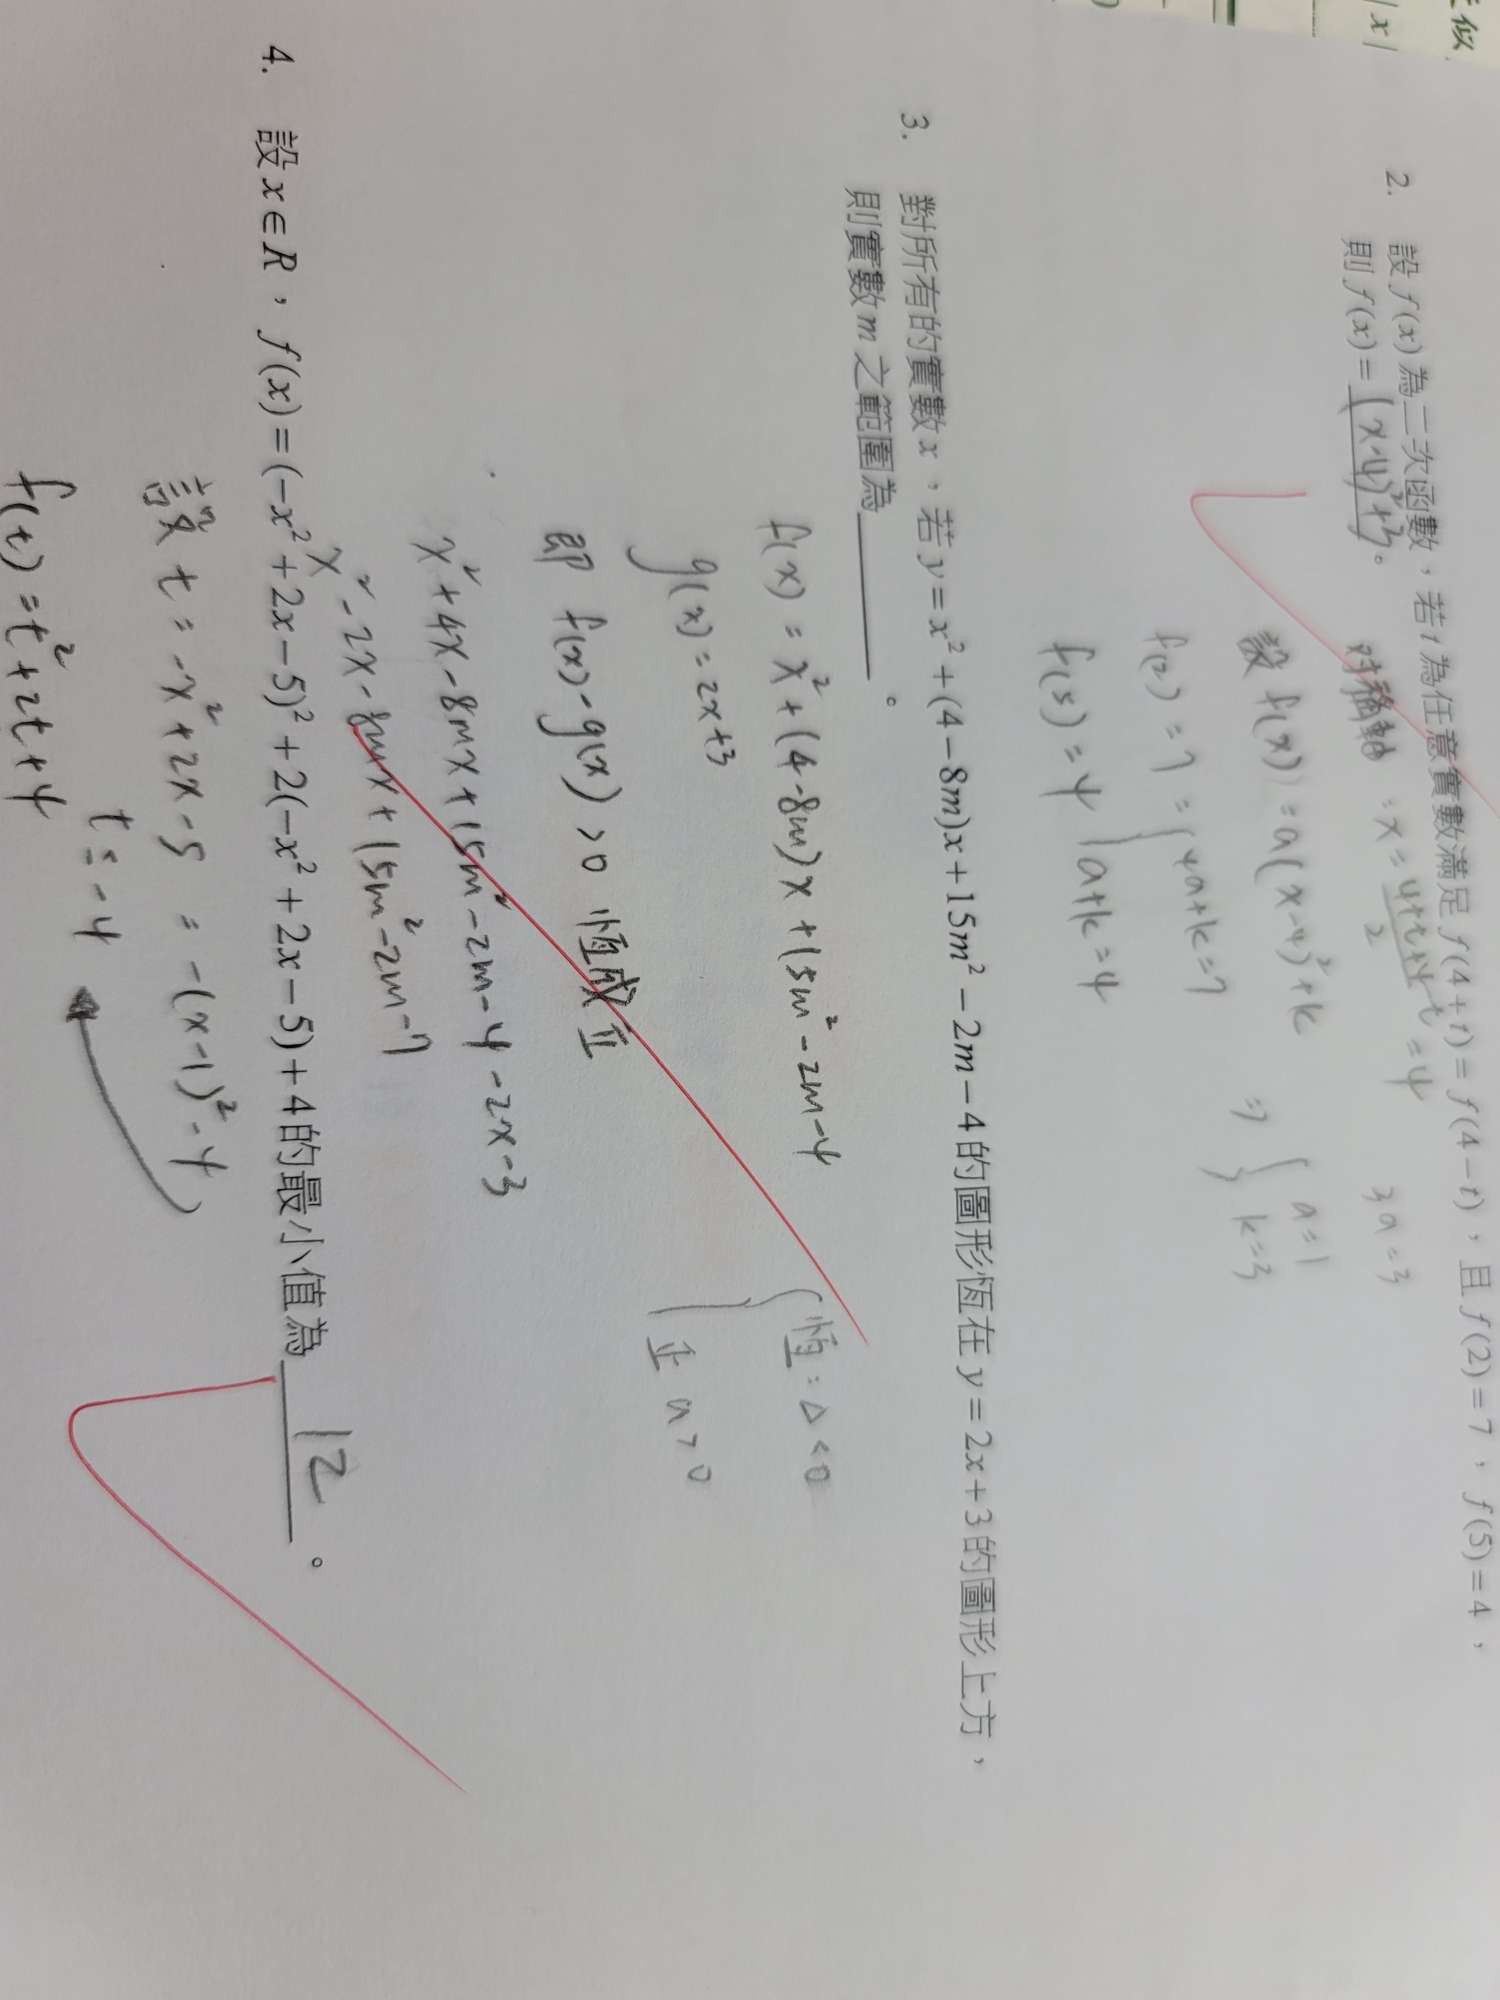 近似
|x|
2. 設 f(x) 為二次函數，若 t 為任意實數滿足 f(4+t)=f(4-t)，且 f(2)=7，f(5)=4，
則 f(x)= (x-4)²+3。
對稱軸 : x = \frac{4+t+4-t}{2} = 4
3a=3
設 f(x) = a(x-4)²+k
⇒ { a=1
k=3
f(2) = 7 = { 4a+k=7
f(5) = 4 { a+k=4
3. 對所有的實數 x，若 y=x²+(4-8m)x+15m²-2m-4 的圖形恆在 y=2x+3 的圖形上方，
則實數 m 之範圍為______。
f(x) = x²+(4-8m)x+15m²-2m-4
{ 恆 : Δ<0
正 a>0
g(x) = 2x+3
即 f(x)-g(x) > 0 恆成正
x²+4x-8mx+15m²-2m-4-2x-3
x²-2x-8mx+15m²-2m-7
4. 設 x∈R，f(x)=(-x²+2x-5)²+2(-x²+2x-5)+4 的最小值為 12。
設 t = -x²+2x-5 = -(x-1)²-4
t≤-4
f(t) = t²+2t+4